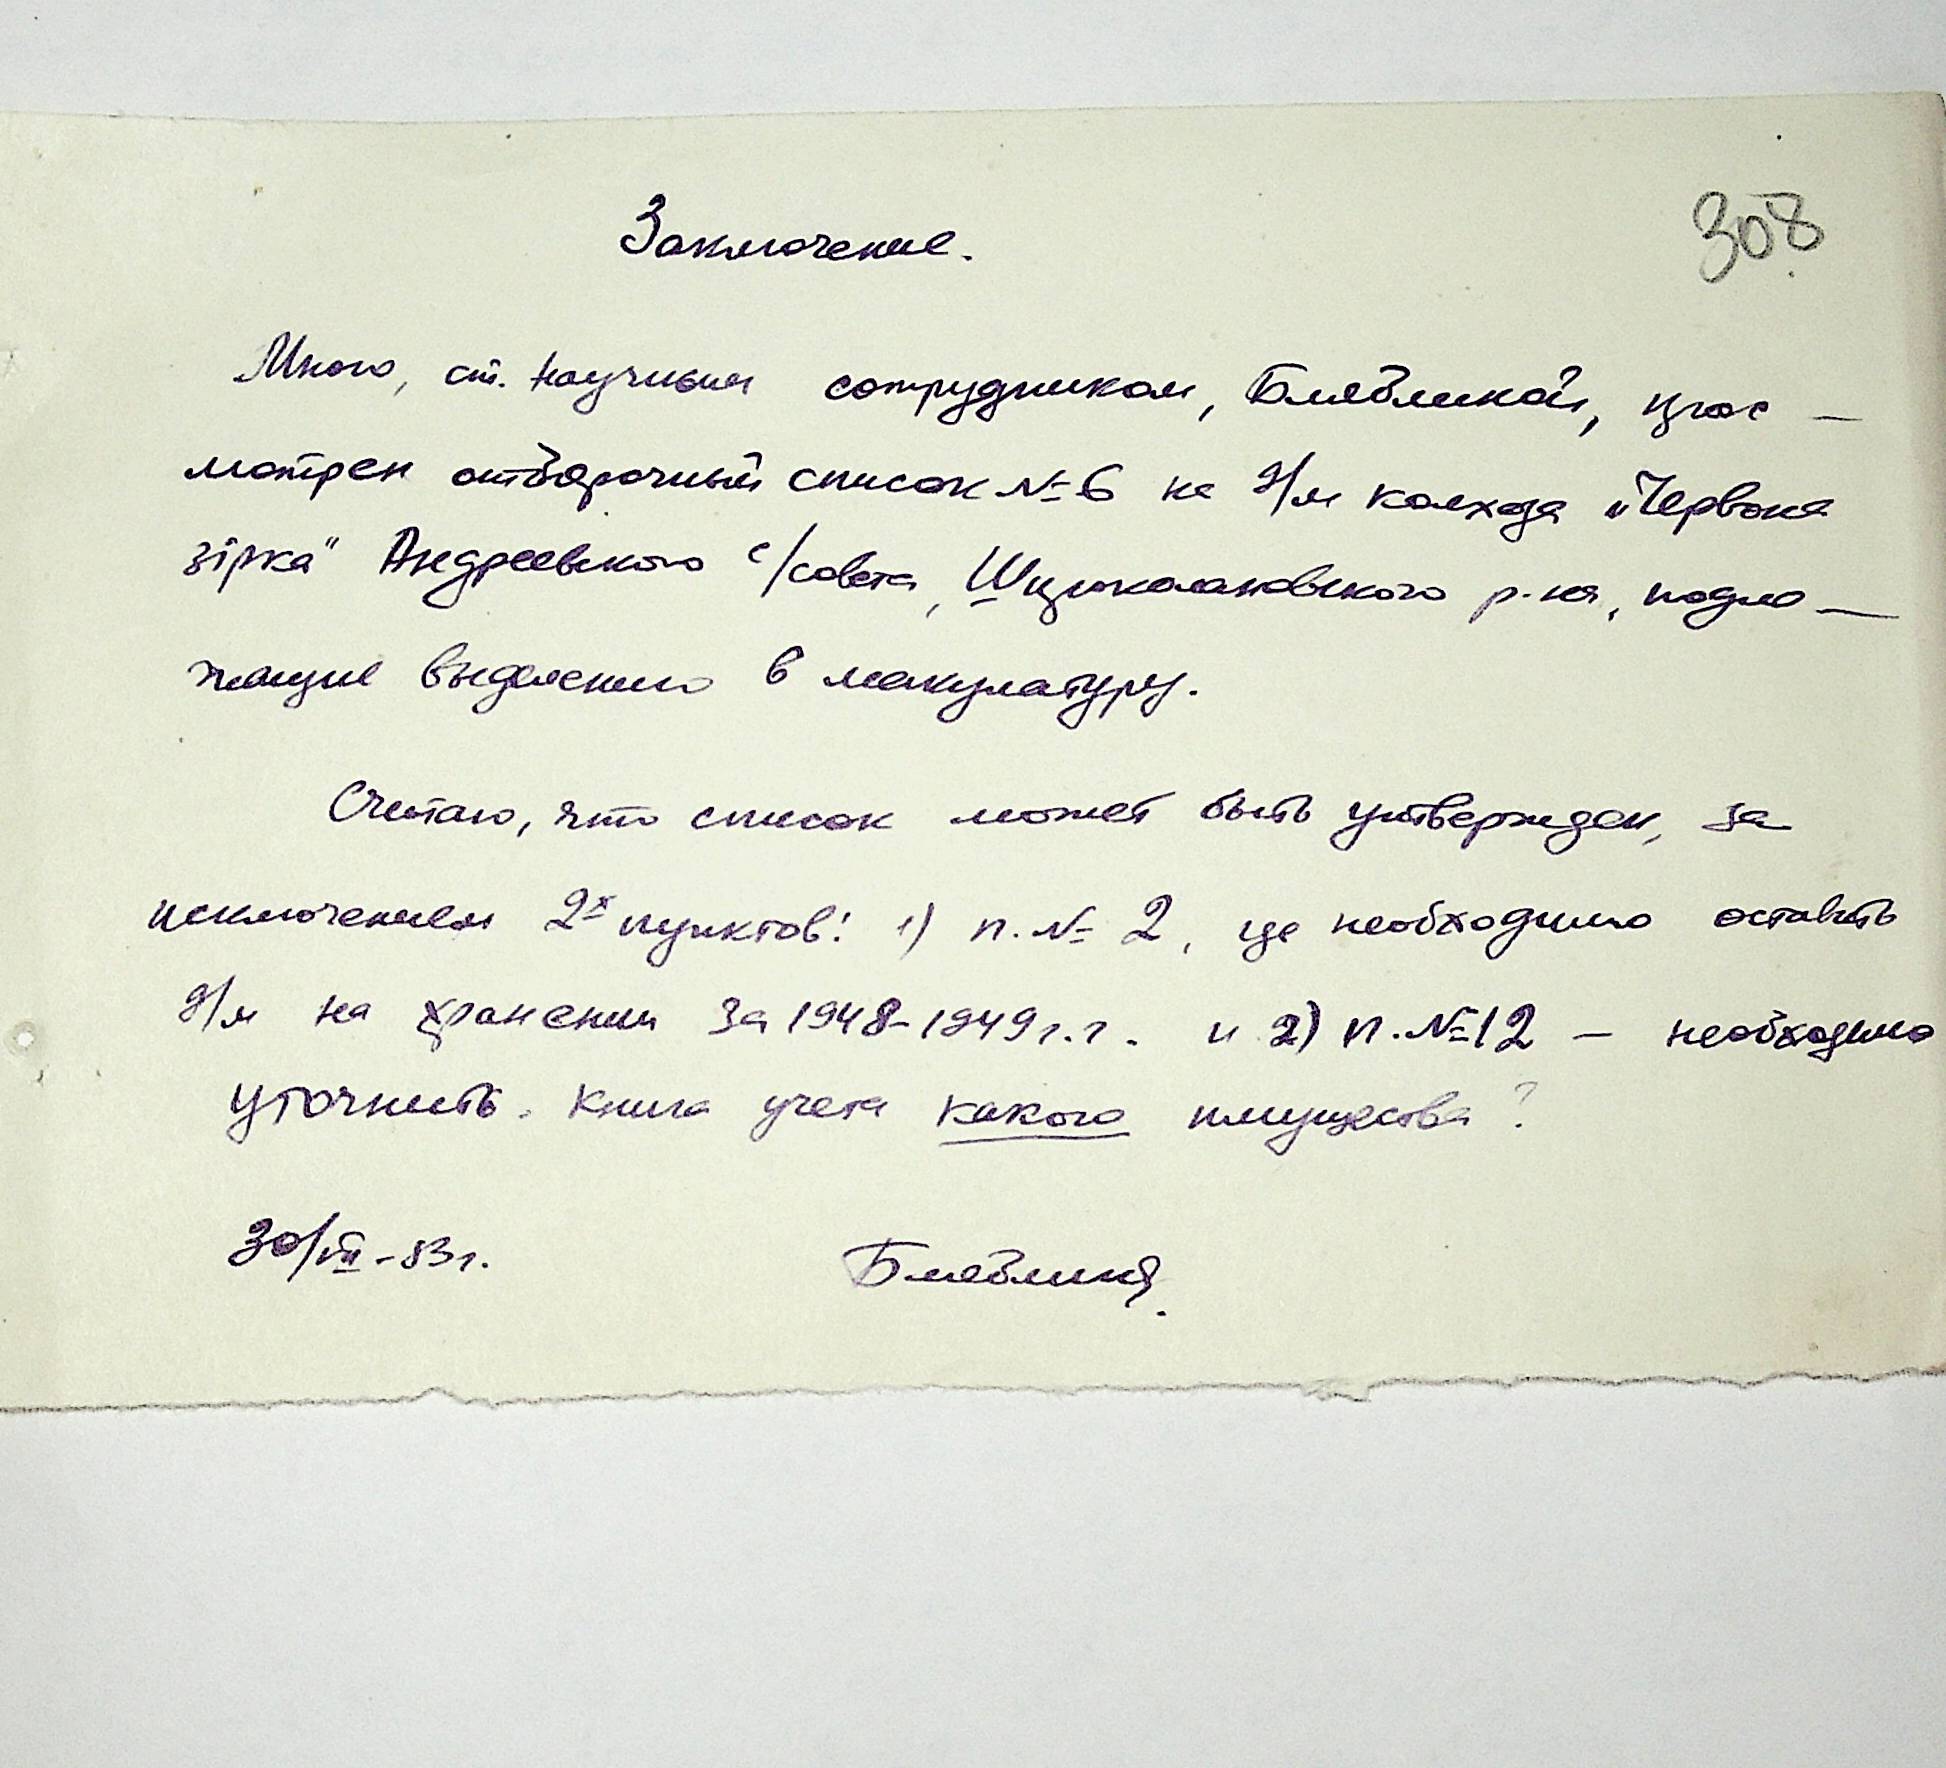 308
Заключение.
Мною, ст. научным сотрудником, прос-
мотрен отборочный список № 6 на д/м колхоза „Червона
зірка" Андреевского с/совета, р-на, подле-
жащие выделению в макулатуру.
Считаю, что список может быть утвержден, за
исключением 2х пунктов: 1) п. № 2, где необходимо оставить
д/м на хранении за 1948-1949 г.г. и 2) п. № 12 – необходимо
уточнить. Книга учета какого имущества?